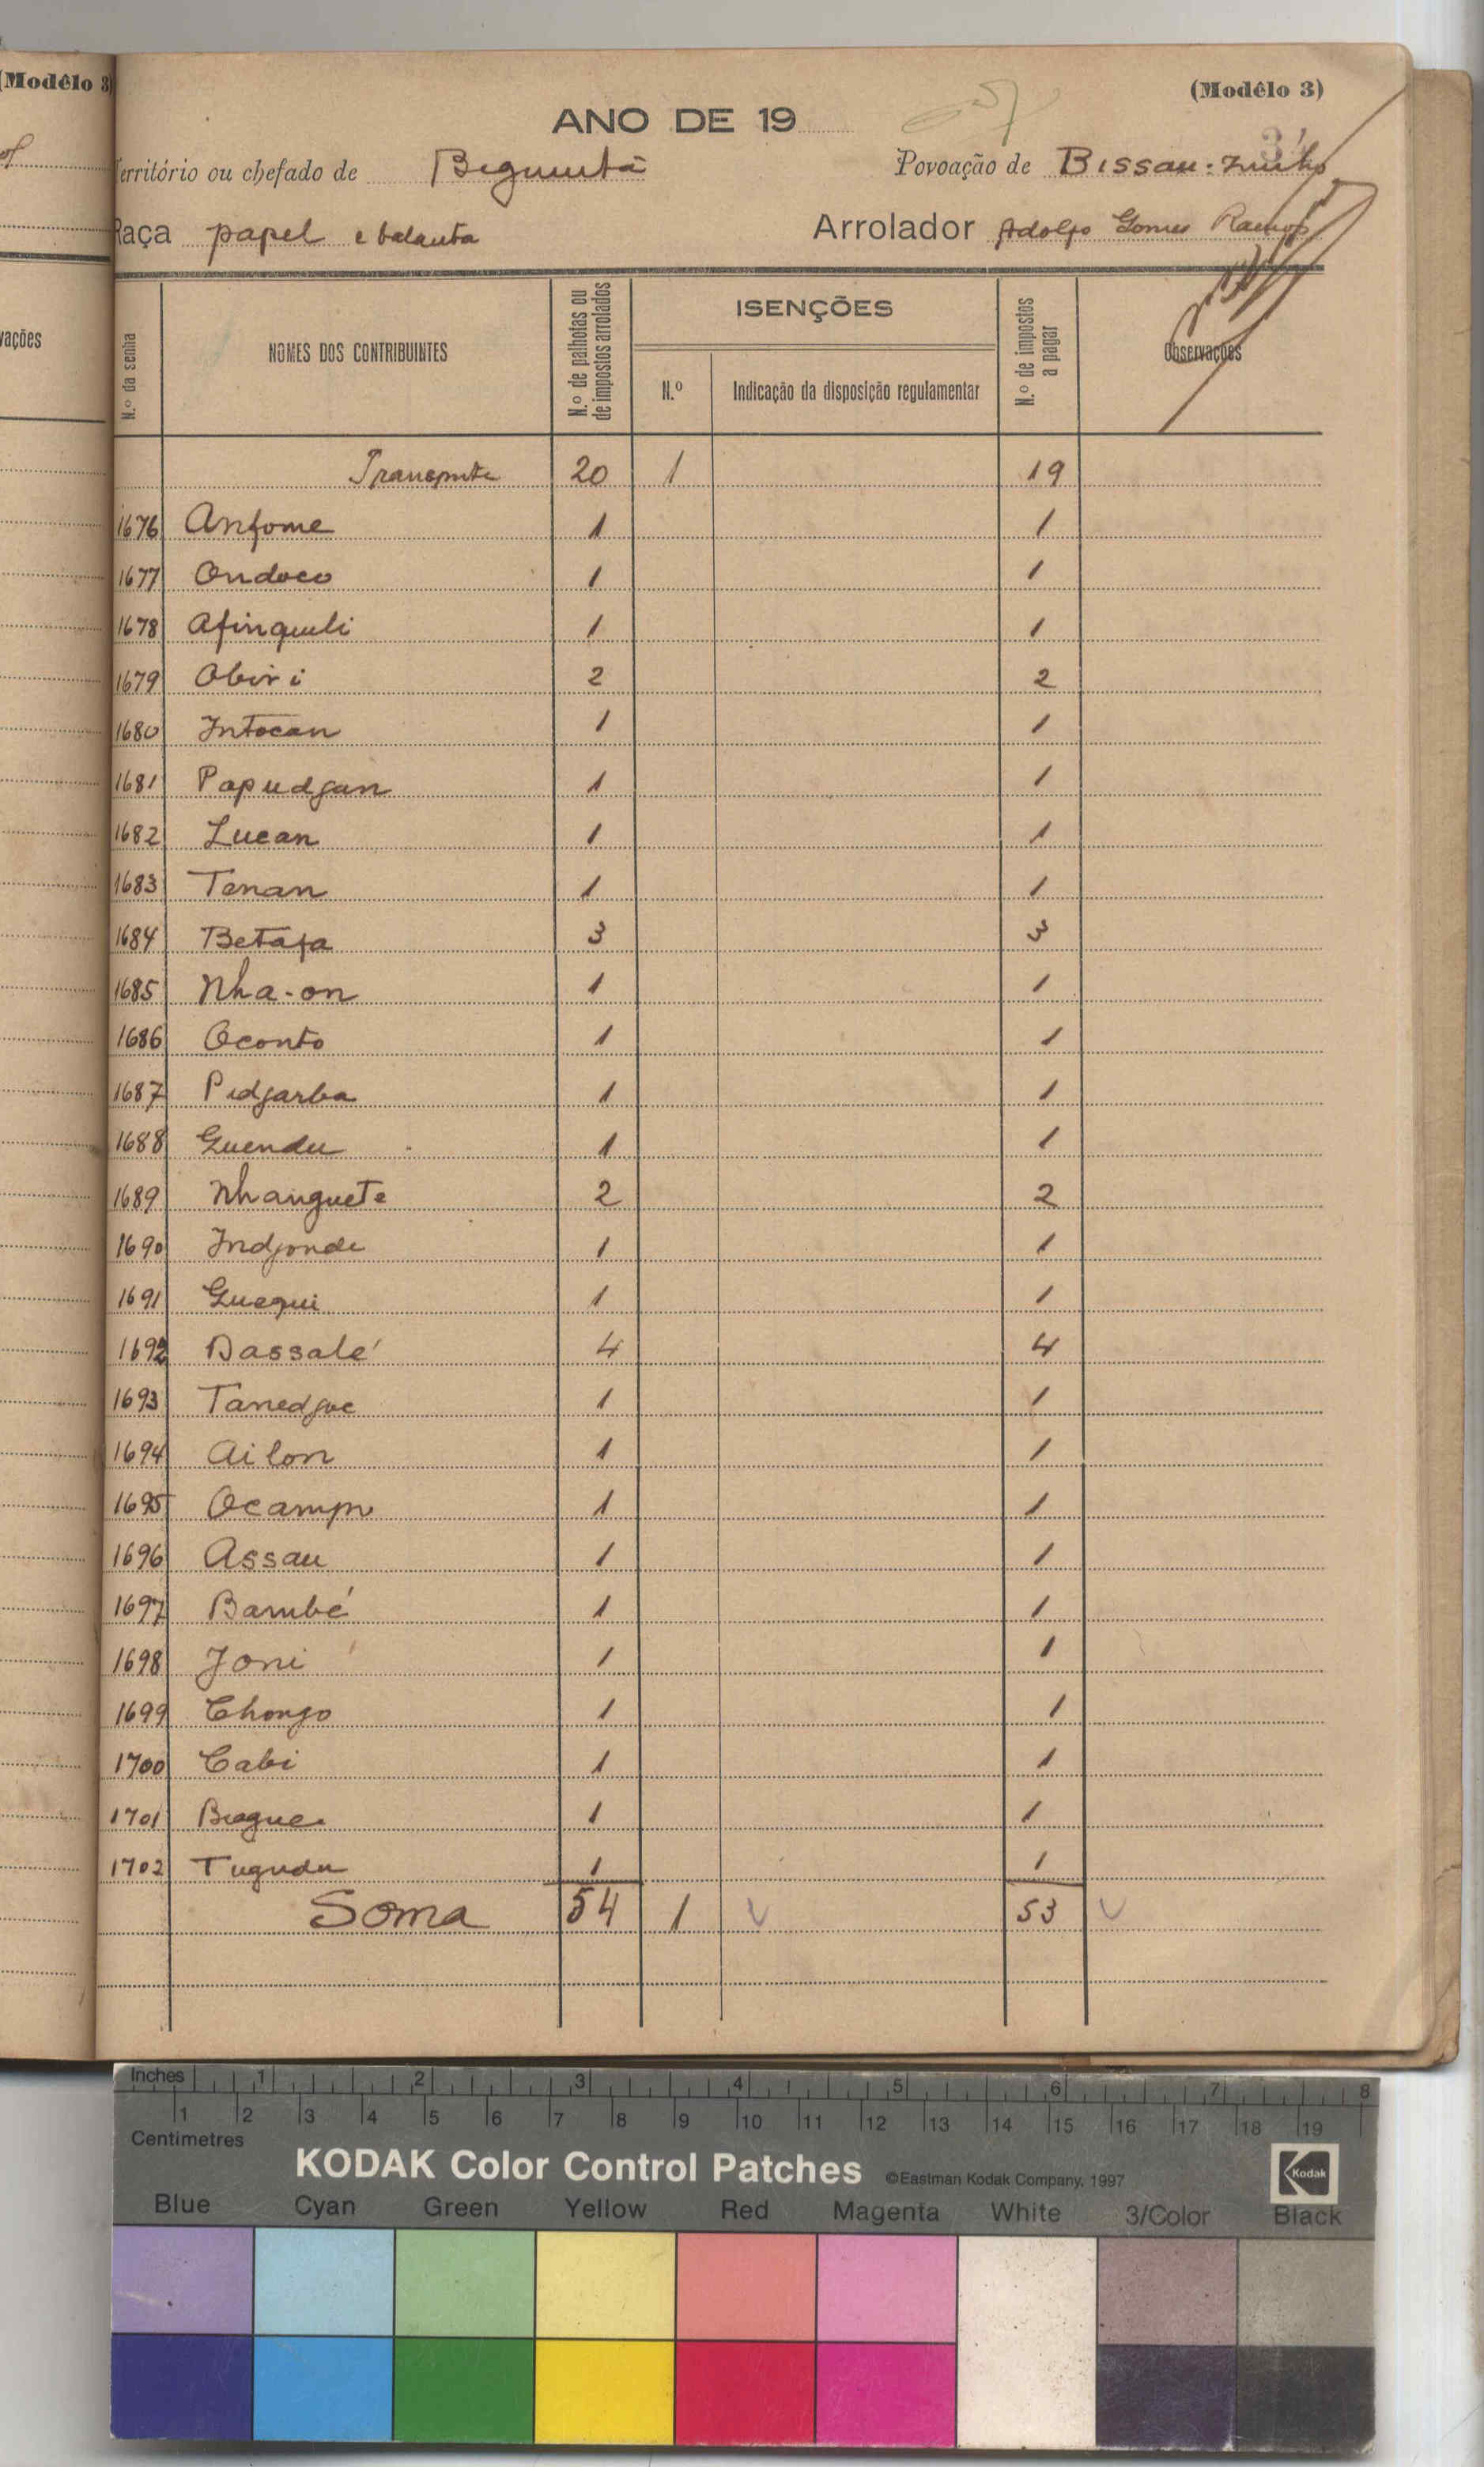 (Modêlo 3)
vações
(Modêlo 3)
ANO DE 19
Território ou chefado de Begumtã Povoação de Bissau-zinho
Raça papel e balanta Arrolador Adolfo Gomes Ramos
N.º da senha NOMES DOS CONTRIBUINTES N.º de palhotas ou de impostos arrolados ISENÇÕES N.º de impostos a pagar Observações
N.º Indicação da disposição regulamentar
Transporte 20 1 19
1676 Anfome 1 1
1677 Ondoco 1 1
1678 Afinqueli 1 1
1679 Obiri 2 2
1680 Intocan 1 1
1681 Papudjan 1 1
1682 Lucan 1 1
1683 Tenan 1 1
1684 Betafa 3 3
1685 Nha-on 1 1
1686 Oconto 1 1
1687 Pidjarba 1 1
1688 Guendu 1 1
1689 Nhanguete 2 2
1690 Indjonde 1 1
1691 Guequi 1 1
1692 Dassalé 4 4
1693 Tanedjoe 1 1
1694 Ailon 1 1
1695 Ocampo 1 1
1696 Assau 1 1
1697 Bambé 1 1
1698 Joni 1 1
1699 Chongo 1 1
1700 Cabi 1 1
1701 Biague 1 1
1702 Tugudu 1 1
Soma 54 1 53
Inches 1 2 3 4 5 6 7 8
1 2 3 4 5 6 7 8 9 10 11 12 13 14 15 16 17 18 19
Centimetres
KODAK Color Control Patches ©Eastman Kodak Company, 1997 Kodak
Blue Cyan Green Yellow Red Magenta White 3/Color Black